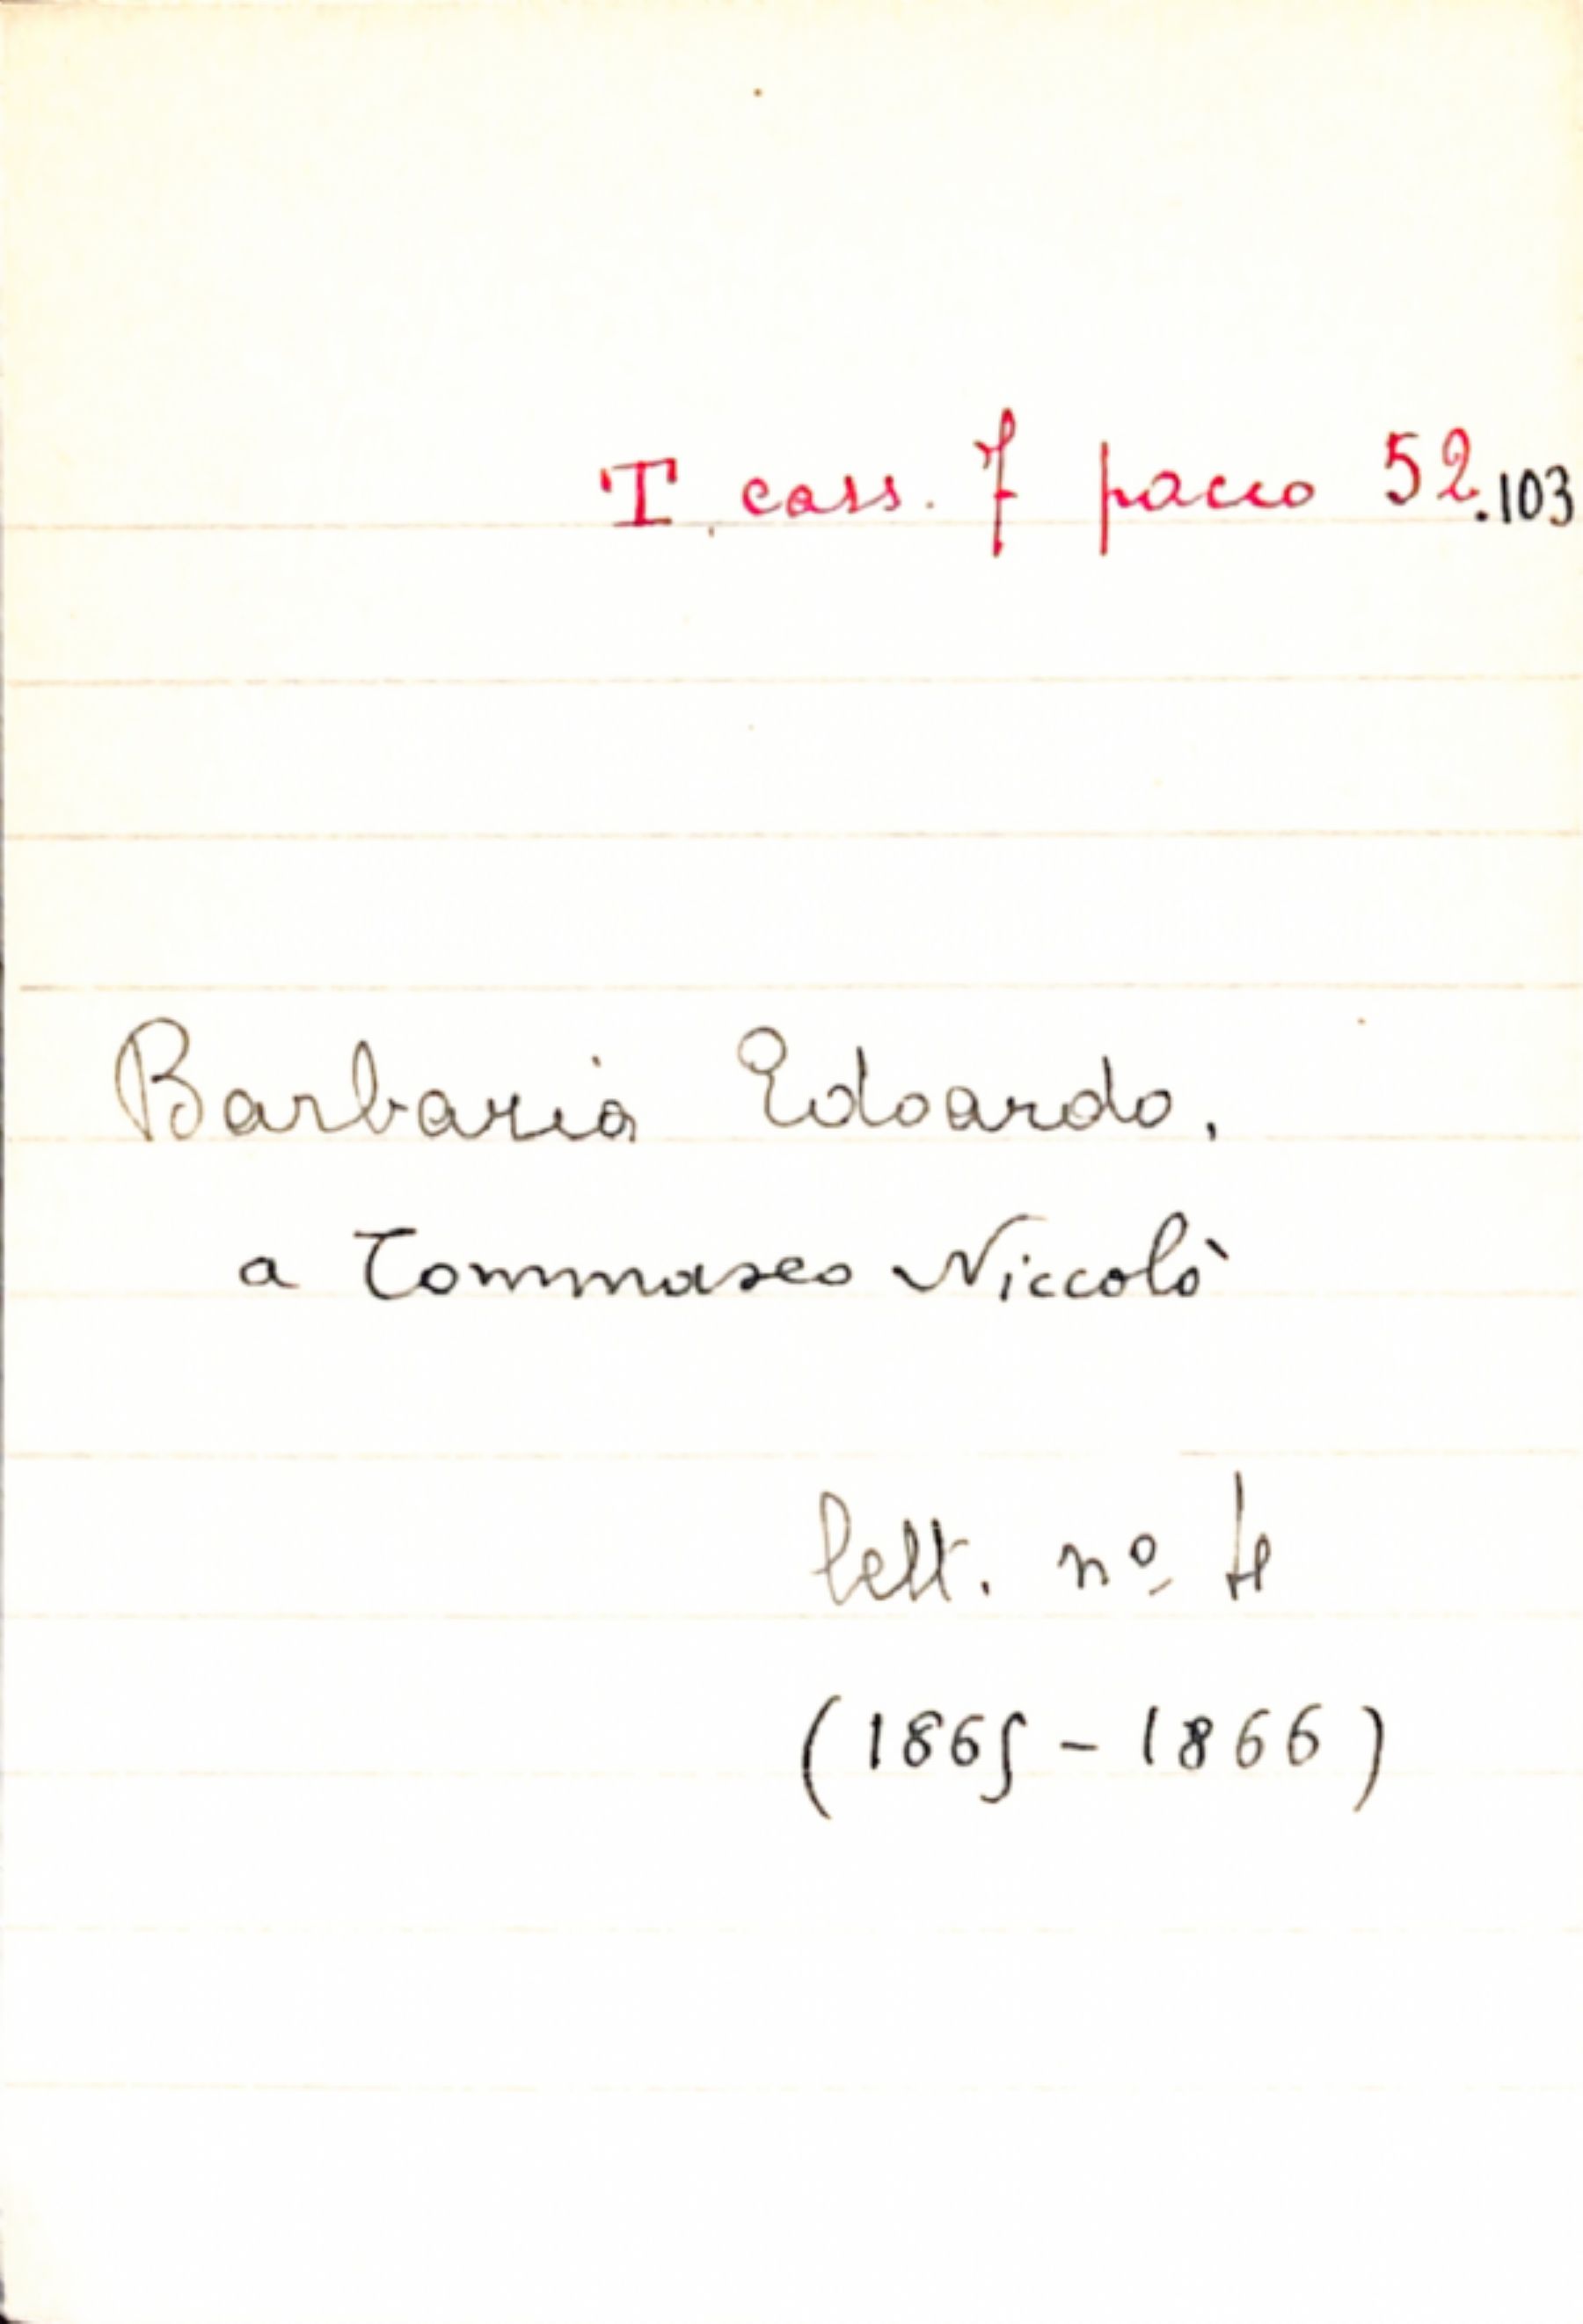 T. cass. 7 pacco 52.103
Barbaria Edoardo,
a Tommaseo Niccolò
lett. nº 4
(1865-1866)